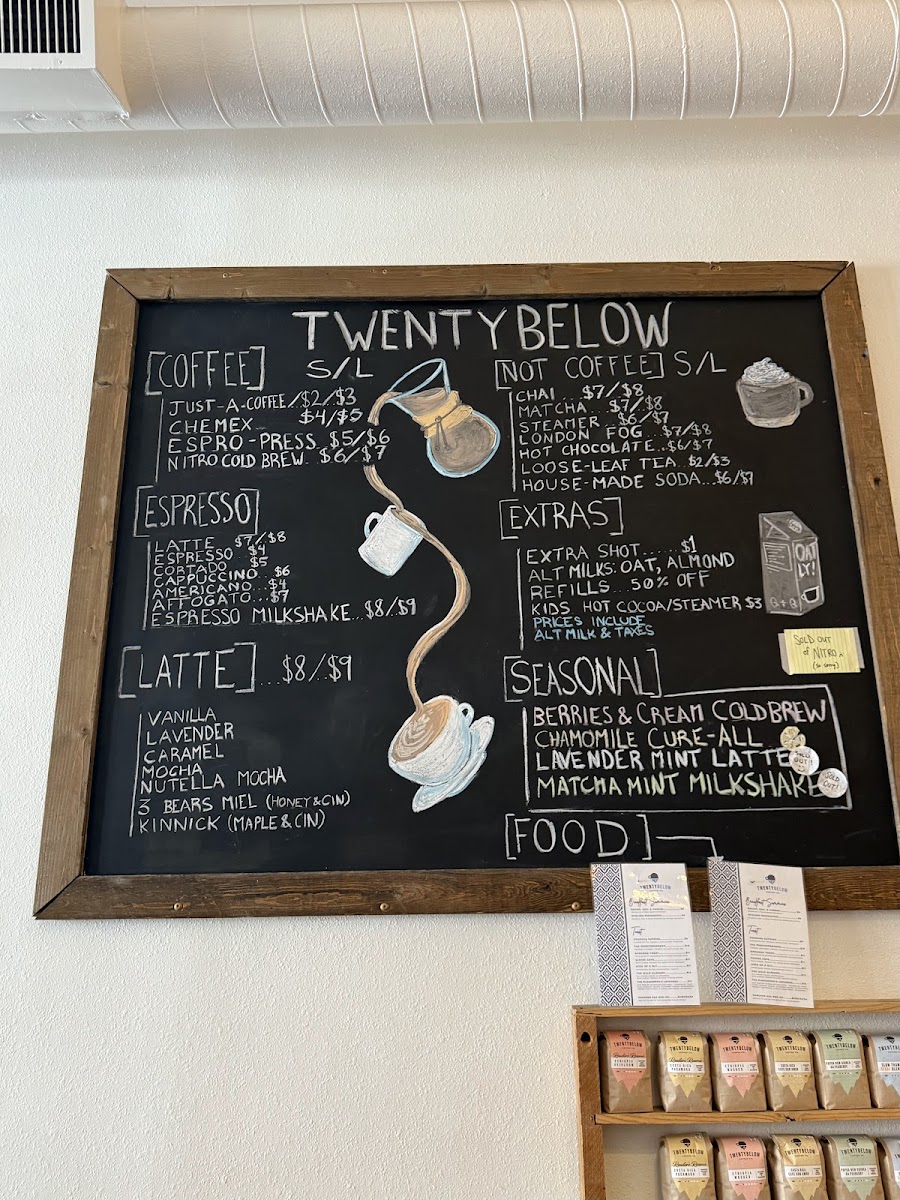 TWENTYBELOW
[COFFEE] S/L
JUST-A-COFFEE/$2/$3
CHEMEX $4/$5
ESPRO-PRESS $5/$6
NITRO COLD BREW..$6/$7
[ESPRESSO]
LATTE $7/$8
ESPRESSO $4
CORTADO $5
CAPPUCCINO...$6
AMERICANO..$4
AFFOGATO..$7
ESPRESSO MILKSHAKE...$8/$9
[LATTE]...$8/$9
VANILLA
LAVENDER
CARAMEL
MOCHA
NUTELLA MOCHA
3 BEARS MIEL (HONEY & CIN)
KINNICK (MAPLE & CIN)
[NOT COFFEE] S/L
CHAI...$7/$8
MATCHA...$7/$8
STEAMER..$6/$7
LONDON FOG..$7/$8
HOT CHOCOLATE...$6/$7
LOOSE-LEAF TEA..$2/$3
HOUSE-MADE SODA...$6/$7
[EXTRAS]
EXTRA SHOT......$1
ALT MILKS: OAT, ALMOND
REFILLS...50% OFF
KIDS HOT COCOA/STEAMER $3
PRICES INCLUDE
ALT MILK & TAXES
OAT
LY!
SOLD OUT
of NITRO
(so sorry)
[SEASONAL]
BERRIES & CREAM COLD BREW
CHAMOMILE CURE-ALL
LAVENDER MINT LATTE
MATCHA MINT MILKSHAKE
SOLD
OUT!
[FOOD]
TWENTYBELOW
Toast
TWENTYBELOW
Toast
TWENTYBELOW
TWENTYBELOW
TWENTYBELOW
TWENTYBELOW
TWENTYBELOW